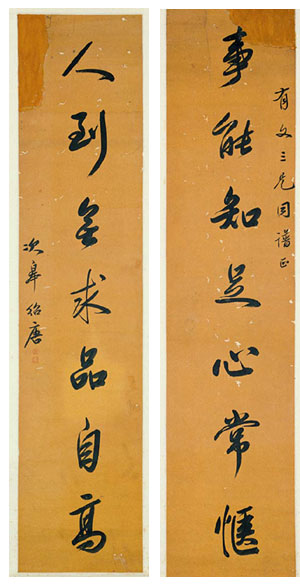 有文三兄同譜正
事能知足心常愜
人到無求品自高
次皋紹唐